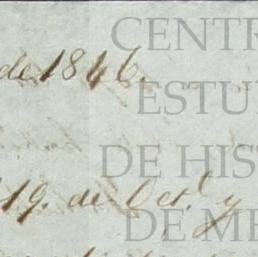 CENTR
de 1846.
ESTU
DE HIS
19. de Oct.^e y
DE ME